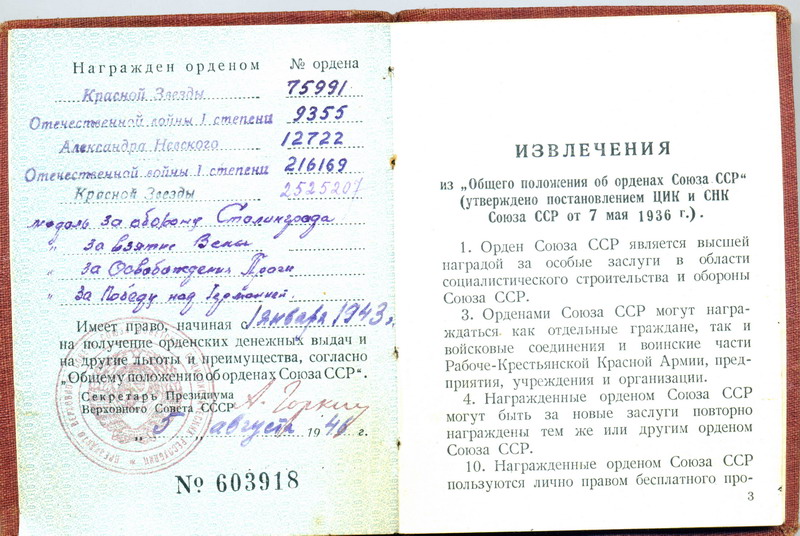 Награжден орденом № ордена
Красной Звезды 75991
Отечественной войны I степени 9355
Александра Невского 12722
Отечественной войны I степени 216169
Красной Звезды 2525207
медаль за оборону Сталинграда
" За взятие Вены
" За Освобождения Праги
" За Победу над Германией
Имеет право, начиная с 1 января 1943 г.
на получение орденских денежных выдач и
на другие льготы и преимущества, согласно
„Общему положению об орденах Союза ССР".
Секретарь Президиума
Верховного Совета СССР А. Горкин
„ 5 " августа 1946 г.
№ 603918
ИЗВЛЕЧЕНИЯ
из „Общего положения об орденах Союза ССР"
(утверждено постановлением ЦИК и СНК
Союза ССР от 7 мая 1936 г.).
1. Орден Союза ССР является высшей
наградой за особые заслуги в области
социалистического строительства и обороны
Союза ССР.
3. Орденами Союза ССР могут награ-
ждаться как отдельные граждане, так и
войсковые соединения и воинские части
Рабоче-Крестьянской Красной Армии, пред-
приятия, учреждения и организации.
4. Награжденные орденом Союза ССР
могут быть за новые заслуги повторно
награждены тем же или другим орденом
Союза ССР.
10. Награжденные орденом Союза ССР
пользуются лично правом бесплатного про-
3